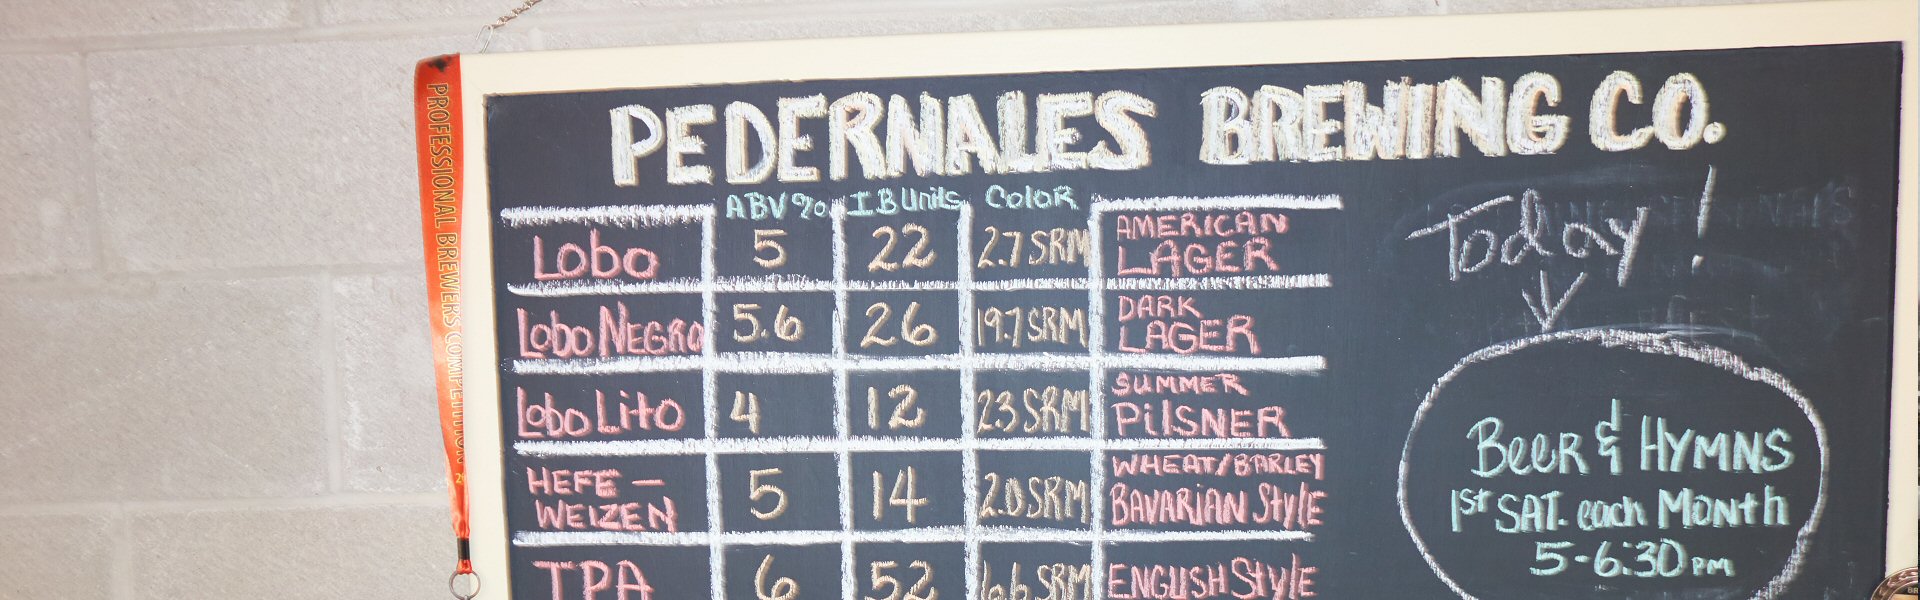 PEDERNALES BREWING CO.
ABV% IBUnits Color
Lobo 5 22 2.7 SRM AMERICAN LAGER
Lobo NEGRO 5.6 26 19.7 SRM DARK LAGER
Lobo Lito 4 12 2.3 SRM SUMMER PilSNER
HEFE – WEIZEN 5 14 2.0 SRM WHEAT/BARLEY BAVARiAN StylE
6 52 SRM ENGLISH StylE
Today!
BeeR & HYMNS
1st SAT. each Month
5-6:30 PM
PROFESSIONAL BREWERS COMPETITION